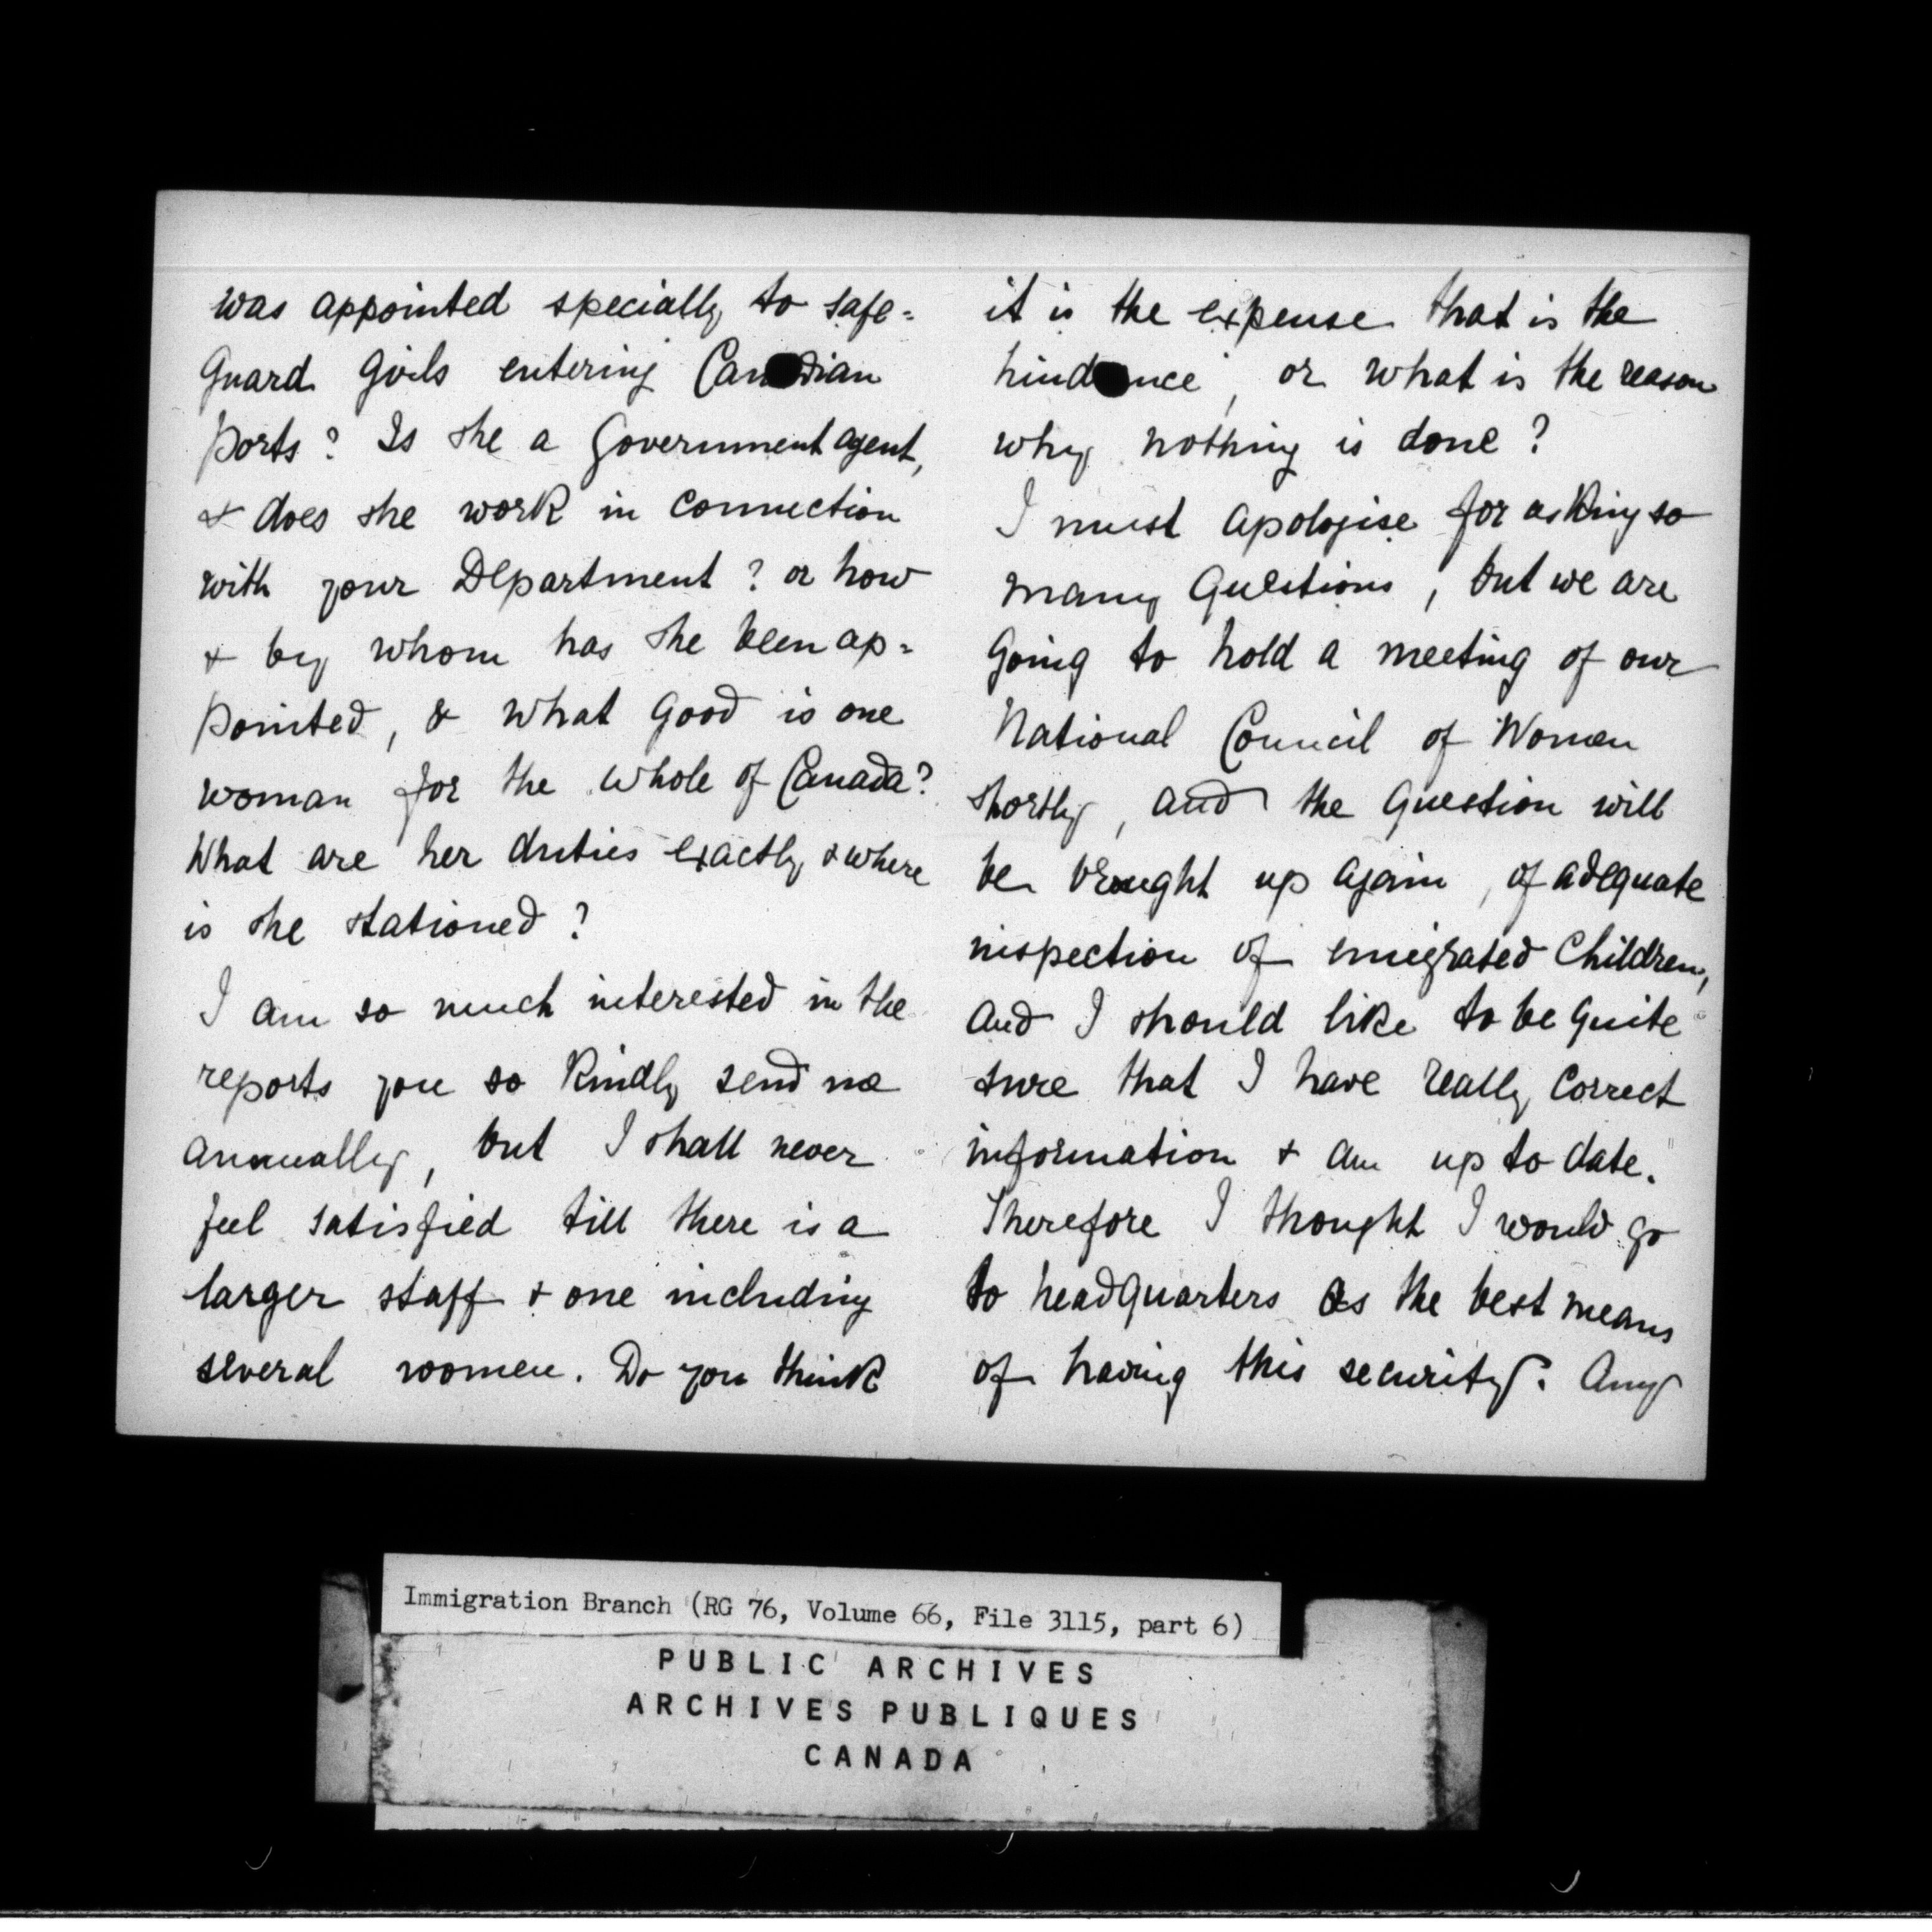 was appointed specially to safe=
guard girls entering Canadian
ports? Is she a Government agent,
& does she work in connection
with your Department? or how
& by whom has she been ap=
pointed, & what good is one
woman for the whole of Canada?
What are her duties exactly & where
is she stationed?
I am so much interested in the
reports you so kindly send me
annually, but I shall never
feel satisfied till there is a
larger staff & one including
several women. Do you think
it is the expense that is the
hindrance, or what is the reason
why nothing is done?
I must apologise for asking so
many questions, but we are
going to hold a meeting of our
National Council of Women
shortly, and the question will
be brought up again, of adequate
inspection of emigrated children,
and I should like to be quite
sure that I have really correct
information & am up to date.
Therefore I thought I would go
to headquarters as the best means
of having this security. Any
Immigration Branch (RG 76, Volume 66, File 3115, part 6)
PUBLIC ARCHIVES
ARCHIVES PUBLIQUES
CANADA